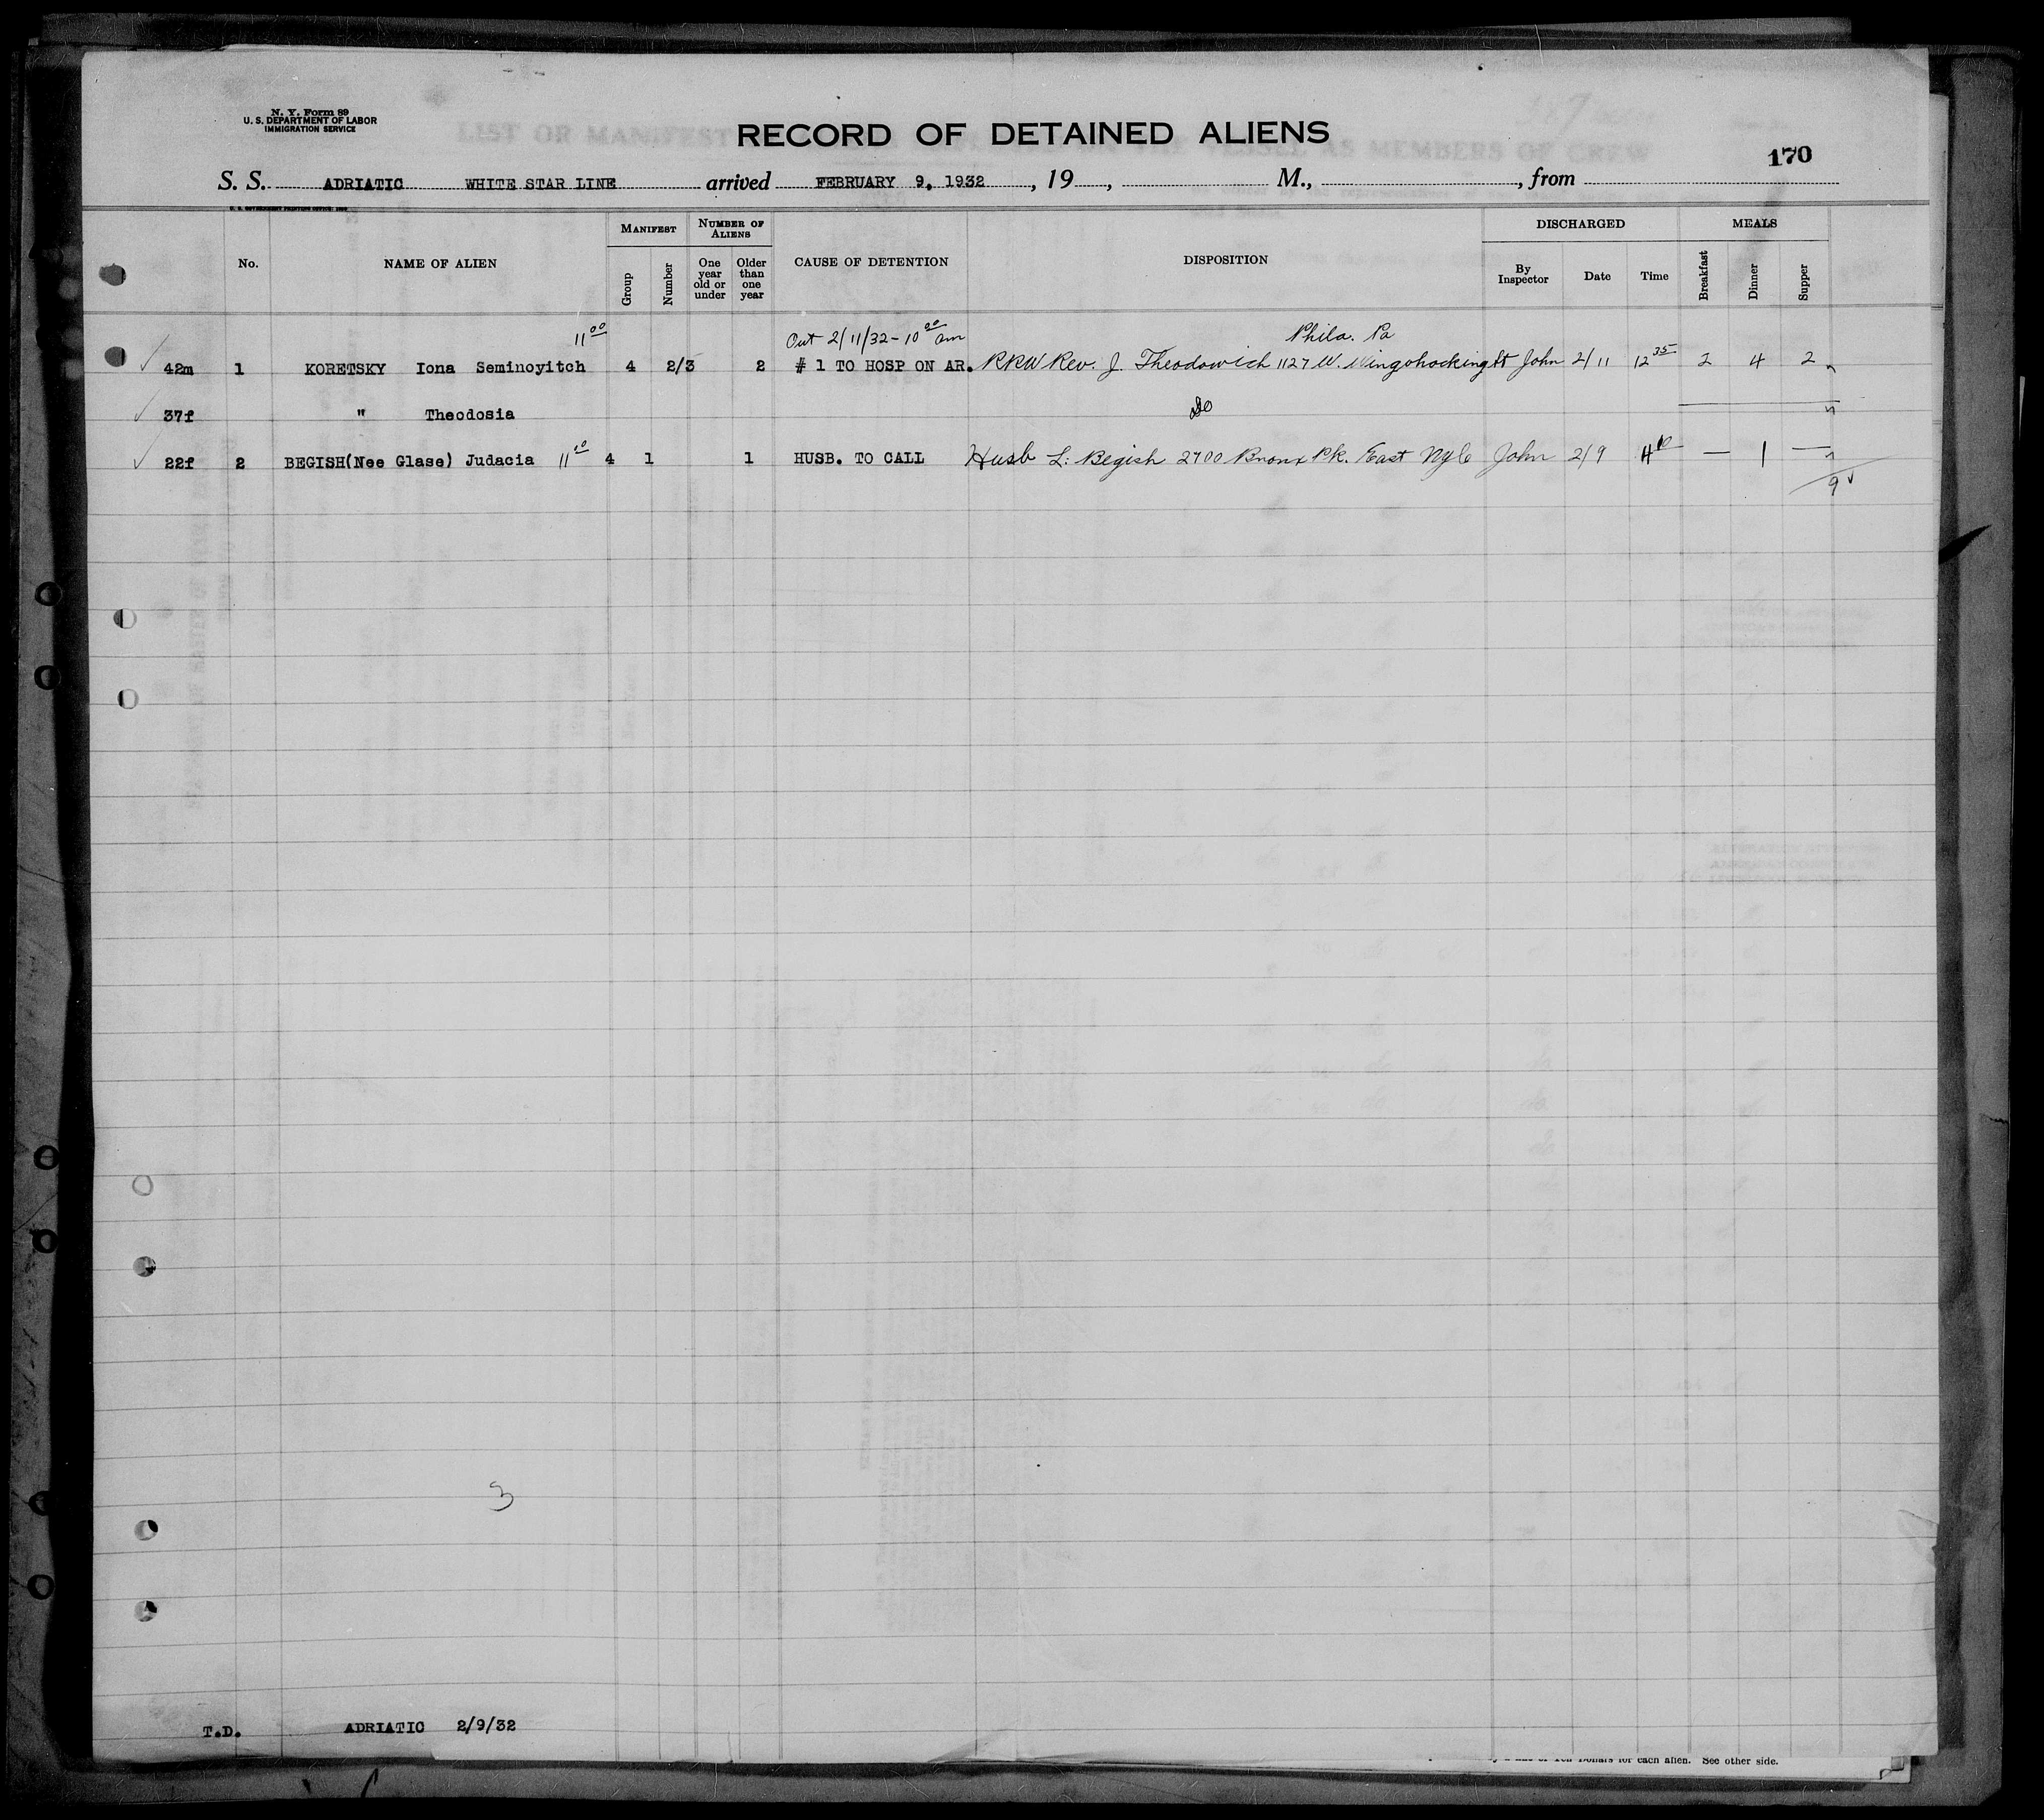 N. Y. Form 89
U. S. DEPARTMENT OF LABOR
IMMIGRATION SERVICE
RECORD OF DETAINED ALIENS
170
S. S. ADRIATIC WHITE STAR LINE arrived FEBRUARY 9, 1932, 19, M., , from
U. S. GOVERNMENT PRINTING OFFICE
No. NAME OF ALIEN MANIFEST Group Number NUMBER OF ALIENS One year old or under Older than one year CAUSE OF DETENTION DISPOSITION DISCHARGED By Inspector Date Time MEALS Breakfast Dinner Supper
11 00 Out 2/11/32 - 10 00 am Phila. Pa
42m 1 KORETSKY Iona Seminoyitch 4 2/3 2 # 1 TO HOSP ON AR. RRW Rev. J. Theodowich 1127 W. Wingohocking St John 2/11 12 35 2 4 2
37f " Theodosia Do
22f 2 BEGISH(Nee Glase) Judacia 11 00 4 1 1 HUSB. TO CALL Husb L. Begish 2700 Bronx Pk. East NYC John 2/9 — 1 —
9
3
T.D. ADRIATIC 2/9/32
for each alien. See other side.